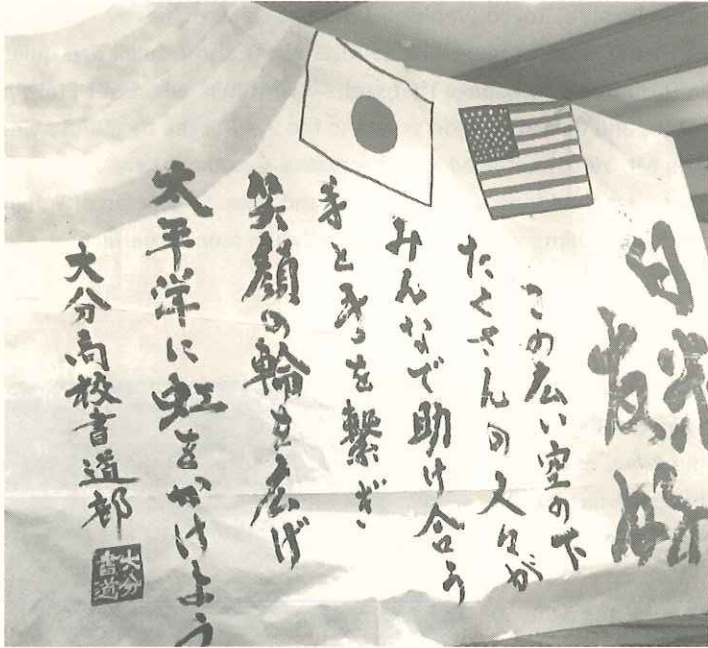 日米
友好
この広い空の下
たくさんの人々が
みんなで助け合う
手と手を繋ぎ
笑顔の輪を広げ
太平洋に虹をかけよう
大分高校書道部
大分
書道